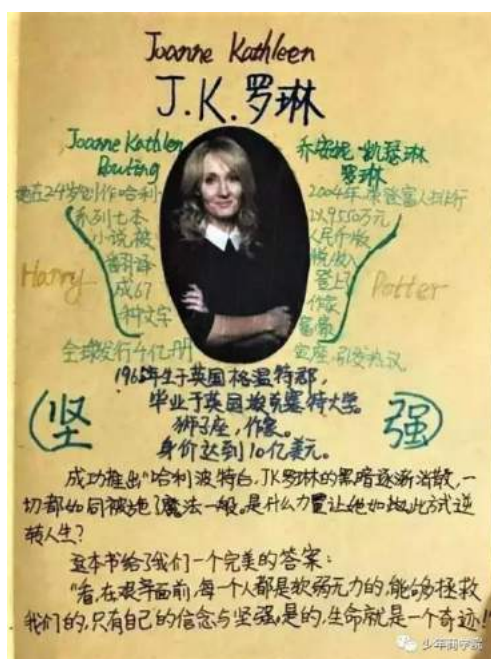 Joanne Kathleen
J.K.罗琳
Joanne Kathleen
Rowling
她在24岁创作哈利
系列七本
小说被
翻译
成67
种文字
全球发行4亿册
乔安妮·凯瑟琳
罗琳
2004年,荣登富人排行
以9550万元
人民币版
税收入
登上
作家
富豪
宝座,引发热议
Harry
Potter
1965年生于英国格温特郡,
毕业于英国埃克塞特大学。
狮子座,作家。
身价达到10亿美元。
坚
强
成功推出"哈利波特后,JK罗琳的黑暗逐渐消散,一
切都如同被施了魔法一般。是什么力量让她如此方式逆
转人生?
这本书给了我们一个完美的答案:
"看,在艰辛面前,每一个人都是软弱无力的,能够拯救
我们的,只有自己的信念与坚强。是的,生命就是一个奇迹!"
少年商学院